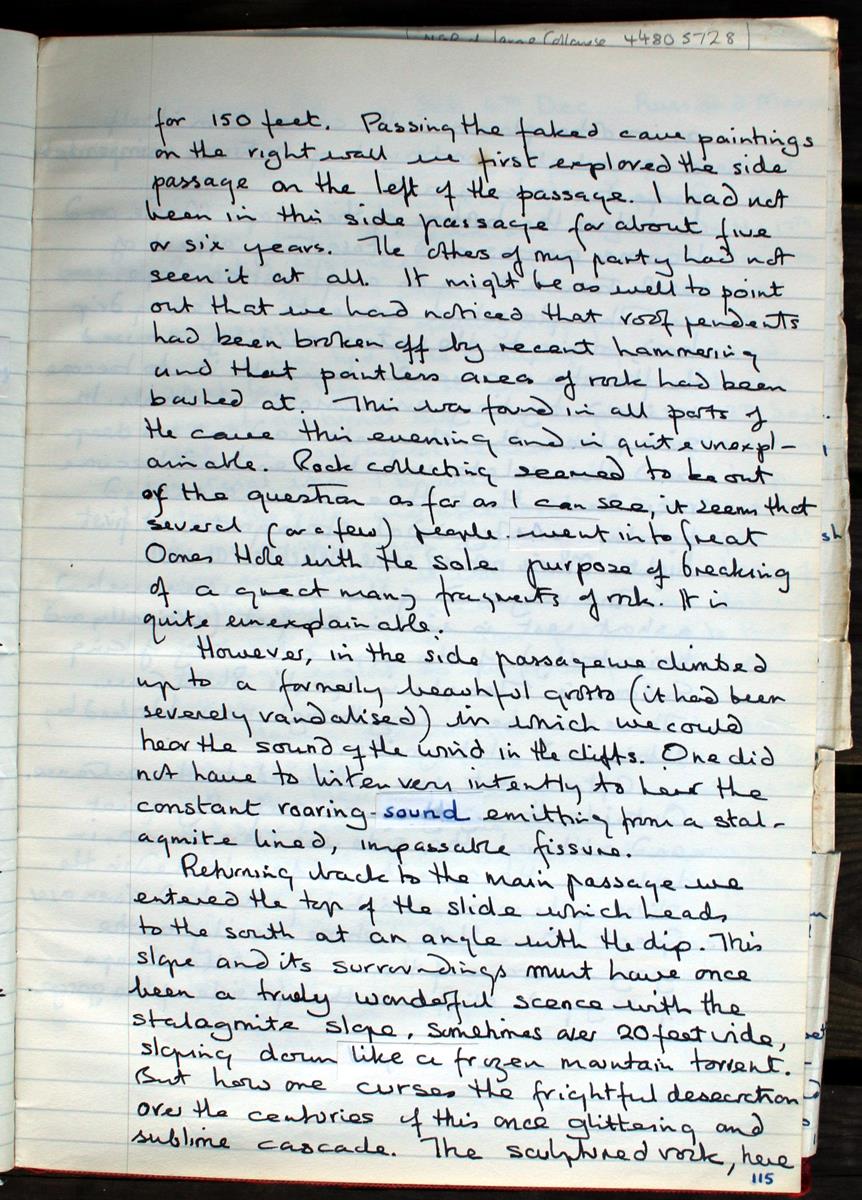 Large Collapse 4480 5728
for 150 feet. Passing the faked cave paintings
on the right wall we first explored the side
passage on the left of the passage. I had not
been in this side passage for about five
or six years. The others of my party had not
seen it at all. It might be as well to point
out that we had noticed that roof pendents
had been broken off by recent hammering
and that pointless areas of rock had been
bashed at. This was found in all parts of
the cave this evening and is quite unexpl-
ainable. Rock collecting seemed to be out
of the question as far as I can see, it seems that
several (or a few) people went into Great
Oones Hole with the sole purpose of breaking
of a great many fragments of rock. It is
quite unexplainable.
However, in the side passage we climbed
up to a formerly beautiful grotto (it had been
severely vandalised) in which we could
hear the sound of the wind in the clifts. One did
not have to listen very intently to hear the
constant roaring sound emitting from a stal-
agmite lined, impassable fissure.
Returning back to the main passage we
entered the top of the slide which heads
to the south at an angle with the dip. This
slope and its surroundings must have once
been a truely wonderful scence with the
stalagmite slope, sometimes over 20 feet wide,
sloping down like a frozen mountain torrent.
But how one curses the frightful desecration
over the centuries of this once glittering and
sublime cascade. The sculptured rock, here
115